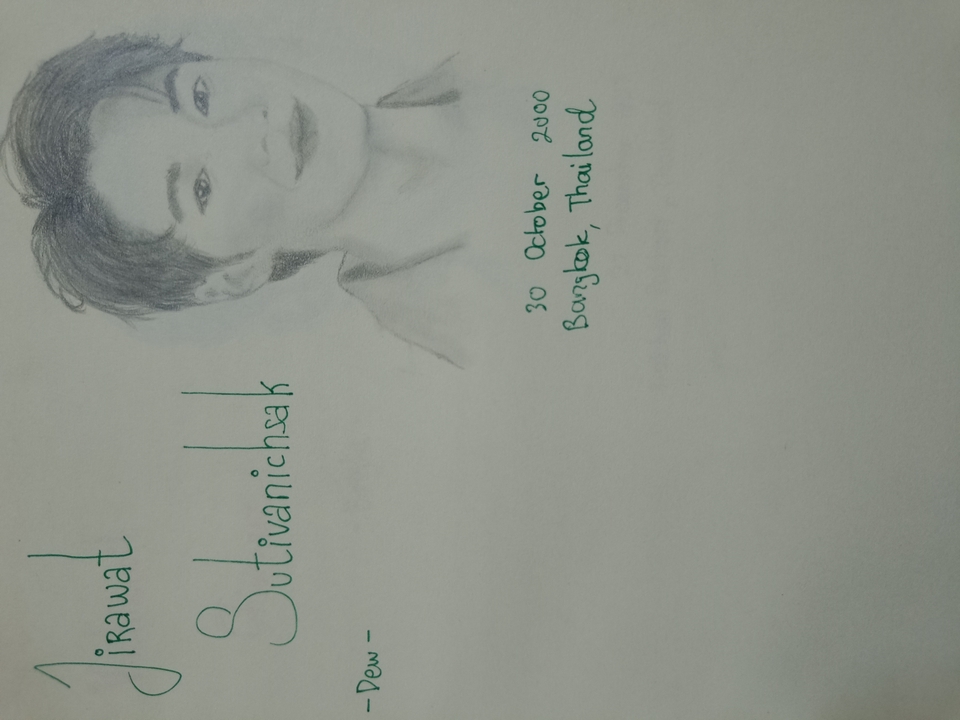 Jirawat
Sutivanichsak
-Dew-
30 October 2000
Bangkok, Thailand